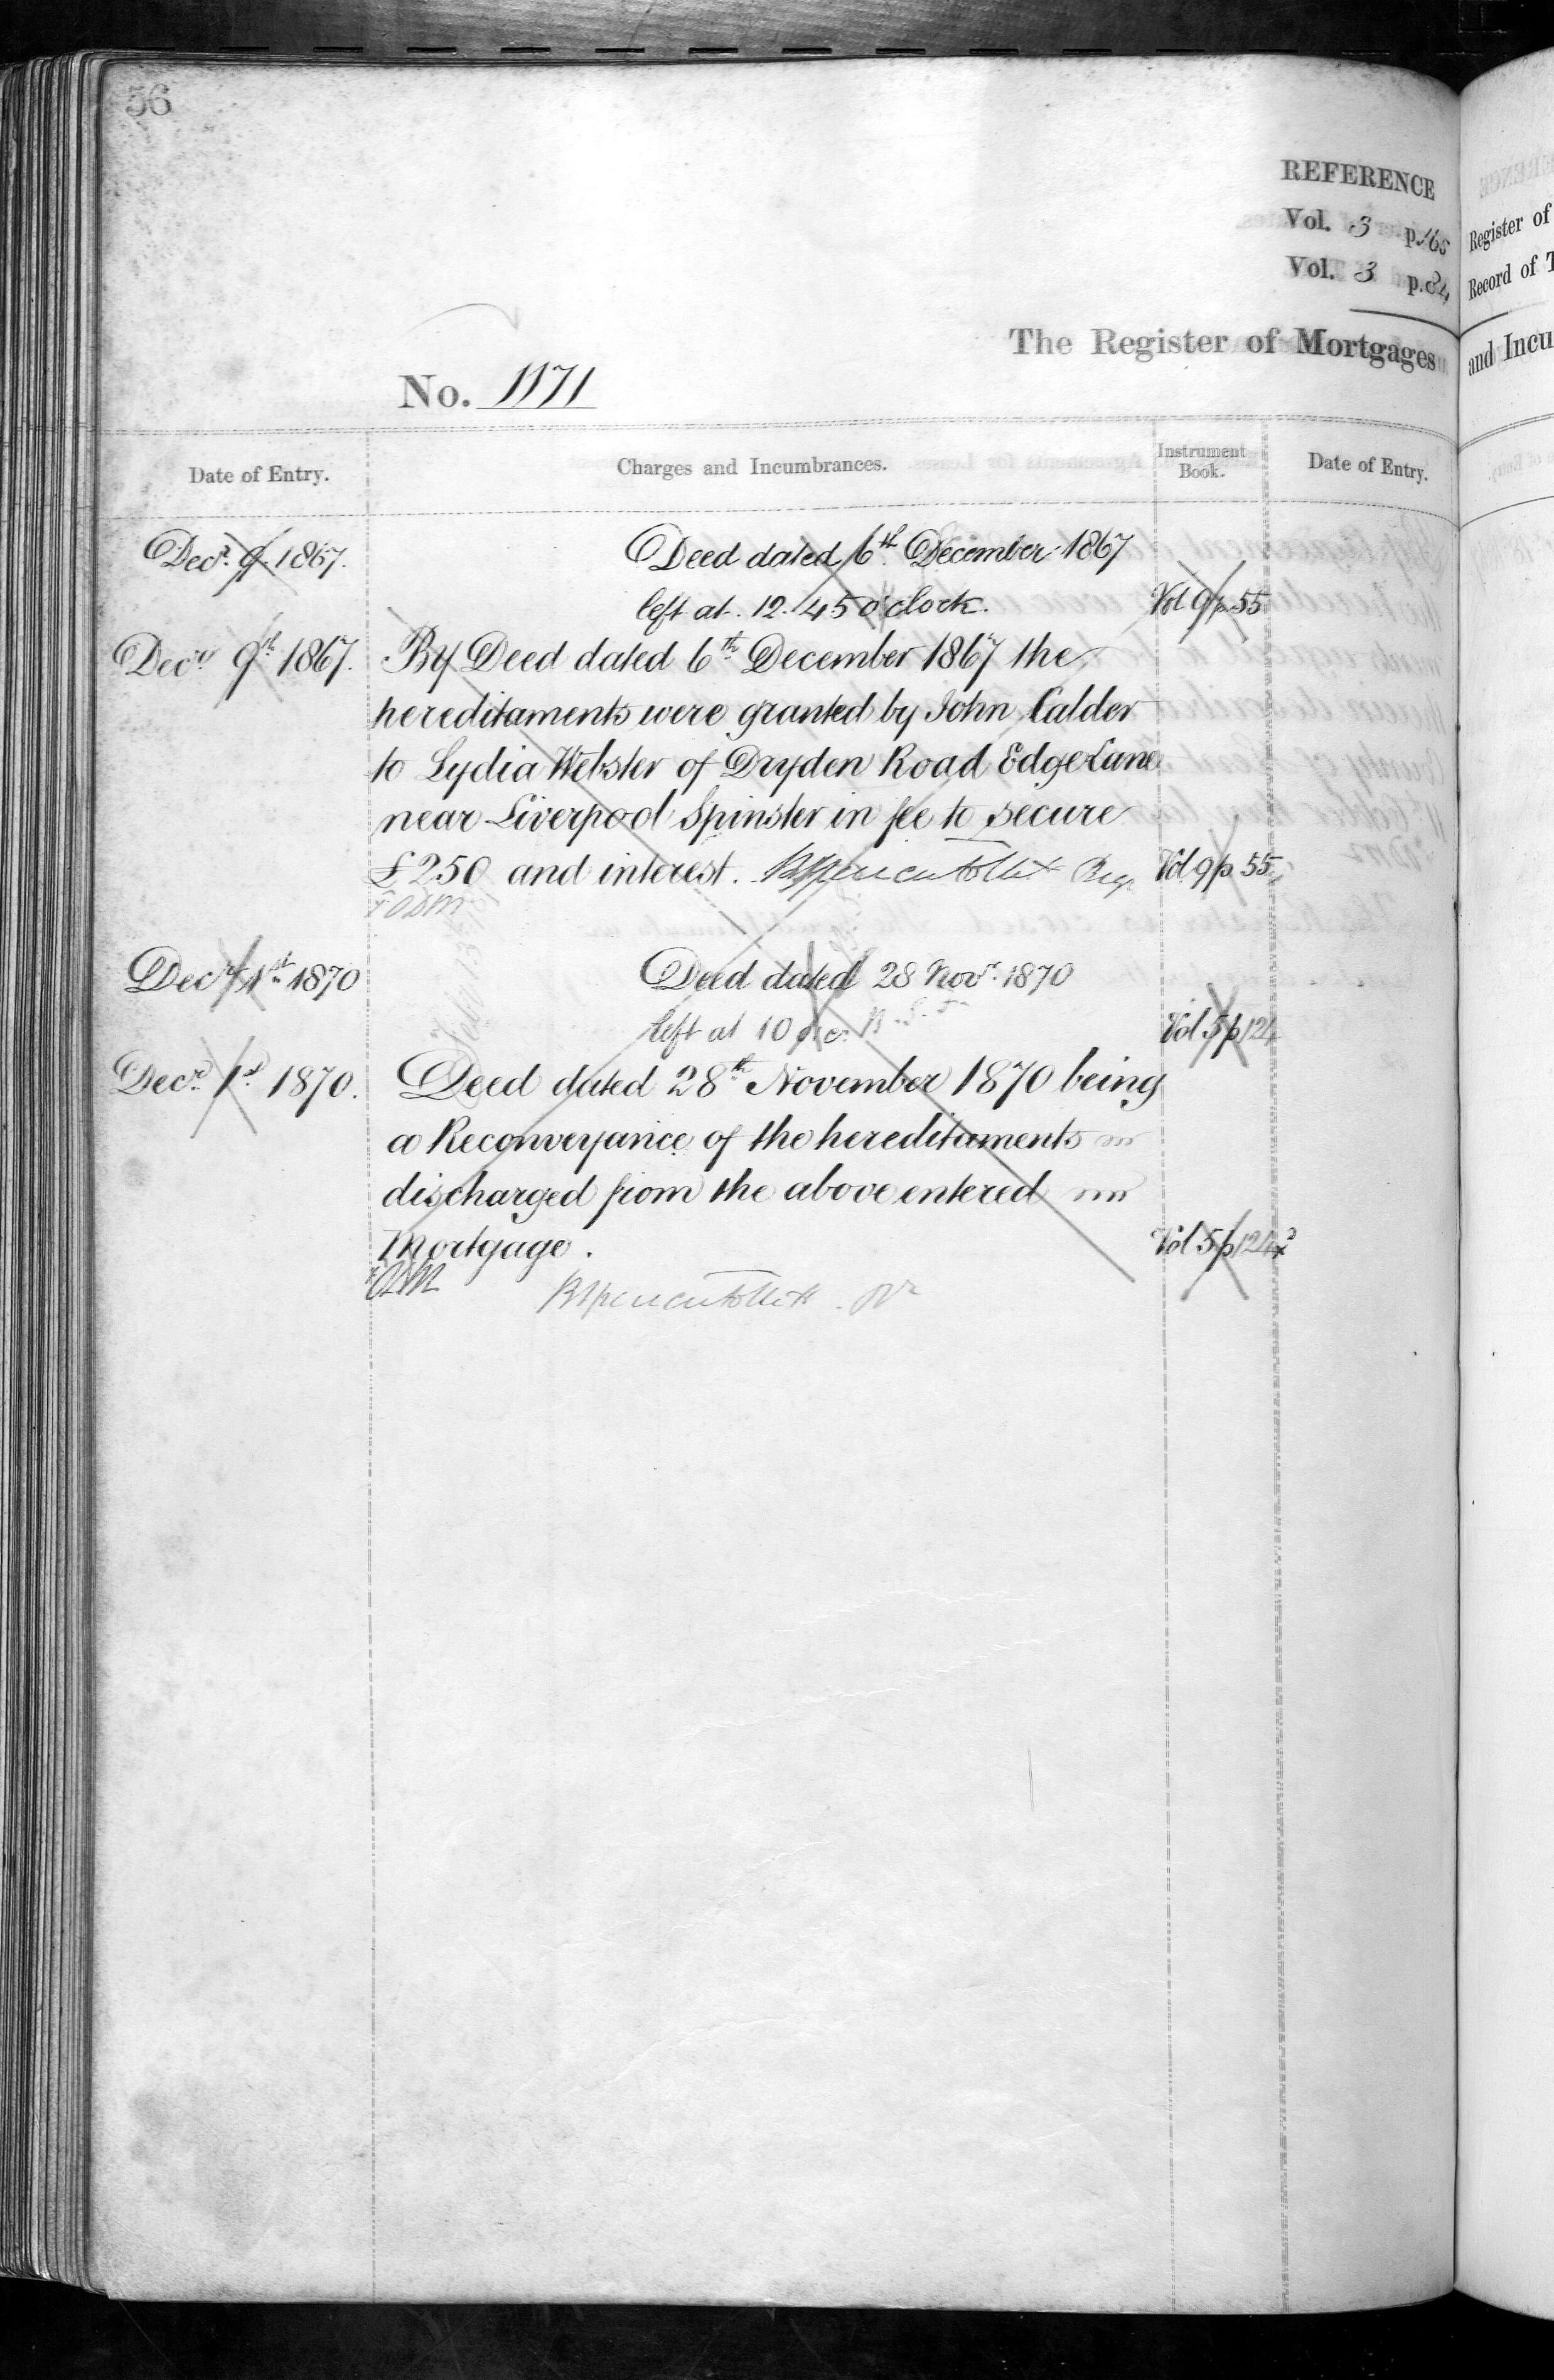 56
REFERENCE
Vol. 3 p.
Vol. 3 p.
The Register of Mortgages
No. 1171
Date of Entry.
Charges and Incumbrances.
Instrument Book.
Date of Entry.
Decr. 9. 1867.
Deed dated 6th December 1867
left at 12.45 o'clock.
Vol 9 p 55
Decr 9th 1867.
By Deed dated 6th December 1867 the
hereditaments were granted by John Calder
to Lydia Webster of Dryden Road Edge Lane
near Liverpool Spinster in fee to secure
£250 and interest.
Vol 9 p 55
Decr 1st 1870
Deed dated 28 Novr. 1870
left at 10
Vol 5 p 124
Decr. 1st 1870.
Deed dated 28th November 1870 being
a Reconveyance of the hereditaments
discharged from the above entered
Mortgage.
Vol 5 p 124
Register of
Record of T
and Incu